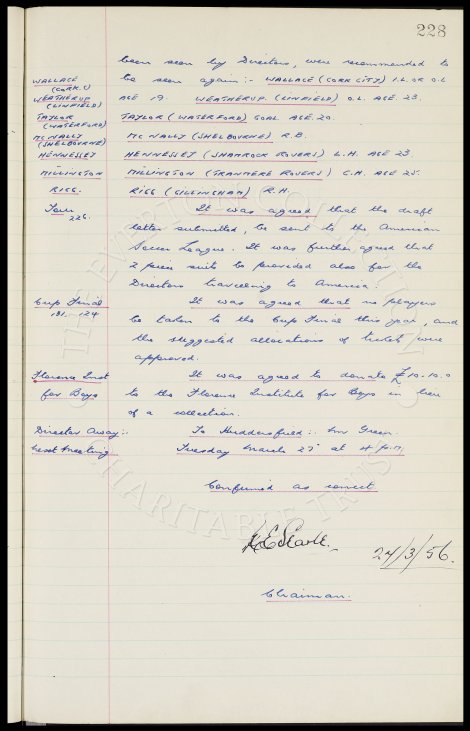 228
been seen by Directors, were recommended to
WALLACE be seen again :- WALLACE (CORK CITY) I.L. OR O.L
(CORK C)
WEATHERUP AGE 19. WEATHERUP. (LINFIELD) O.L. AGE 23.
(LINFIELD)
TAYLOR TAYLOR (WATERFORD) GOAL AGE 20.
(WATERFORD)
MCNALLY MCNALLY (SHELBOURNE) R.B.
(SHELBOURNE)
HENNESSEY HENNESSEY (SHAMROCK ROVERS) L.H. AGE 23
MILLINGTON MILLINGTON (TRANMERE ROVERS) C.H. AGE 25.
RIGG. RIGG (GILLINGHAM) R.H.
Tour It was agreed that the draft
226. letter submitted, be sent to the American
Soccer League. It was further agreed that
2 piece suits be provided also for the
Directors travelling to America.
Cup Final It was agreed that no players
191-124 be taken to the Cup Final this year, and
the suggested allocations of tickets were
approved.
Florence Inst It was agreed to donate £10.10.0
for Boys to the Florence Institute for Boys in lieu
of a collection.
Director Away:- To Huddersfield:- Mr Green
Next Meeting Tuesday March 27 at 4 p.m.
Confirmed as correct
27/3/56.
Chairman.
THE EVERTON COLLECTION
CHARITABLE TRUST